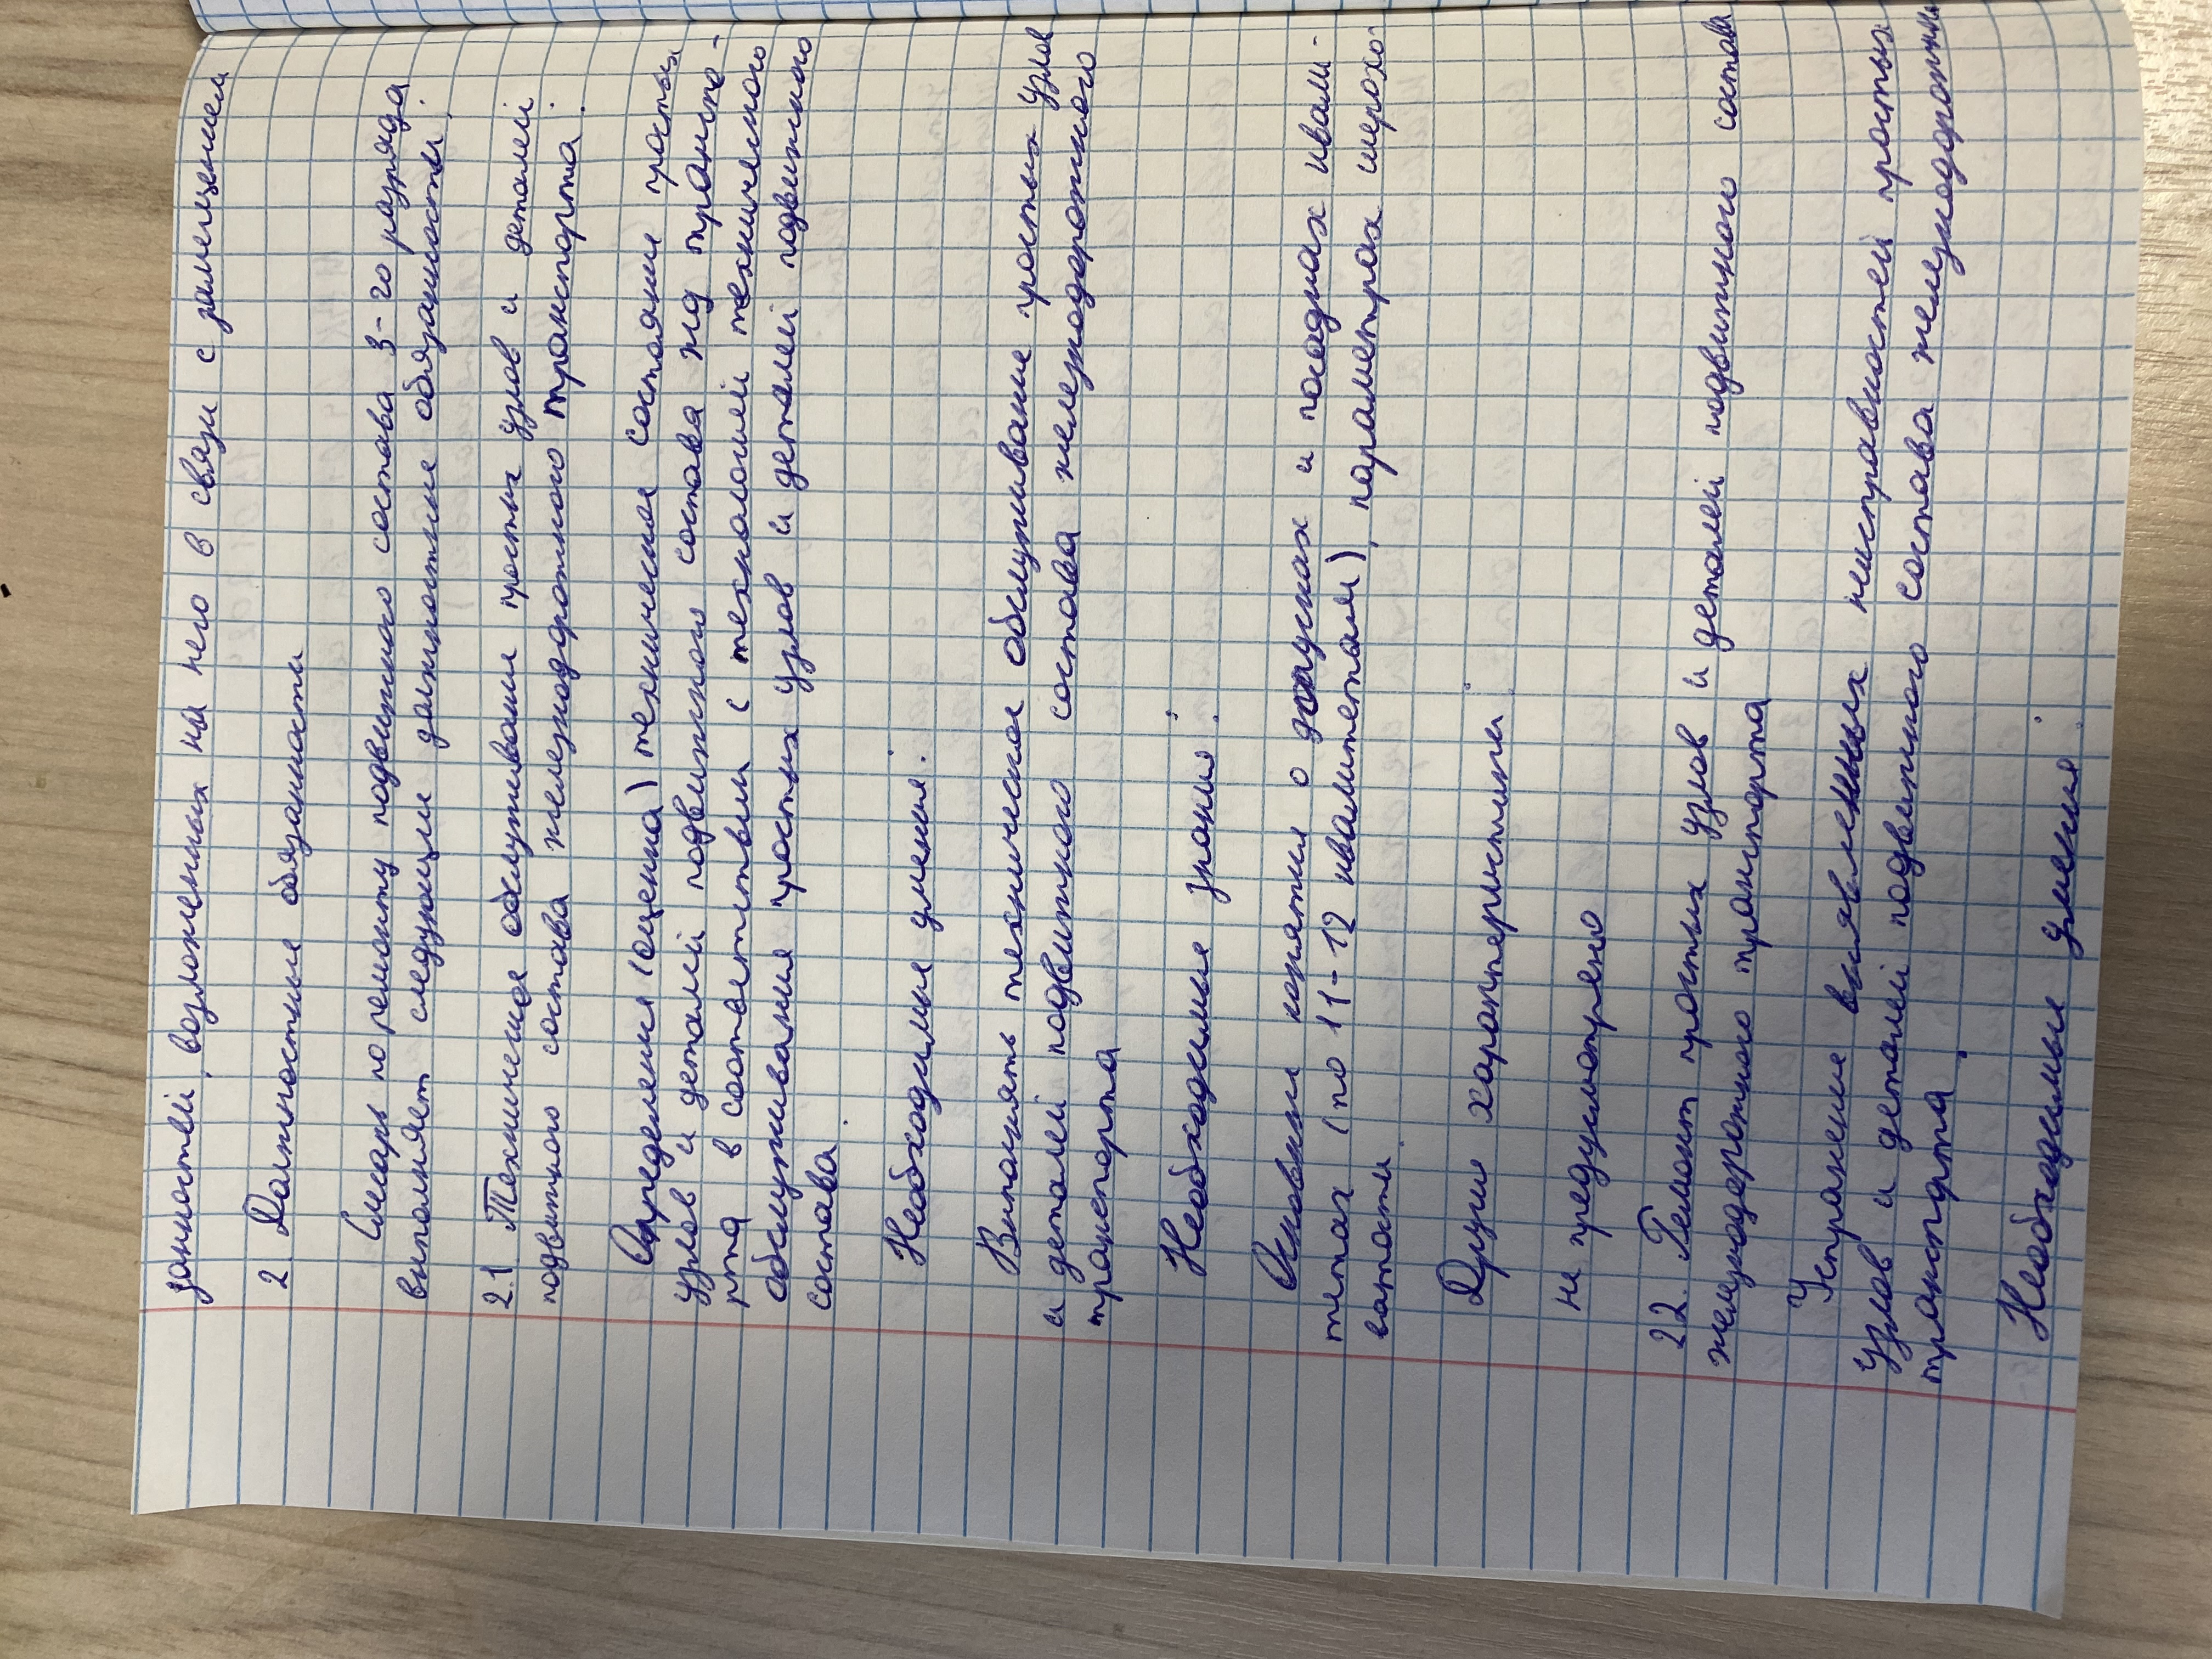 занностей, возложенных на него в связи с замещением
2 Должностные обязанности
Слесарь по ремонту подвижного состава 3-го разряда
выполняет следующие должностные обязанности:
2.1 Техническое обслуживание простых узлов и деталей
подвижного состава железнодорожного транспорта:
Определение (оценка) технические состояние простых
узлов и деталей подвижного состава жд транспо-
рта в соответствии с технологией технического
обслуживания простых узлов и деталей подвижного
состава.
Необходимые умения:
Выполнять техническое обслуживание простых узлов
и деталей подвижного состава железнодорожного
транспорта
Необходимые знания:
Основные понятия о допусках и посадках квали-
тетах (по 11-12 квалитетам), параметрах шерохо-
ватости.
Другие характеристики:
не предусмотрено
2.2. Ремонт простых узлов и деталей подвижного состава
железнодорожного транспорта
Устранение выявленных неисправностей простых
узлов и деталей подвижного состава железнодорожного
транспорта.
Необходимые умения: